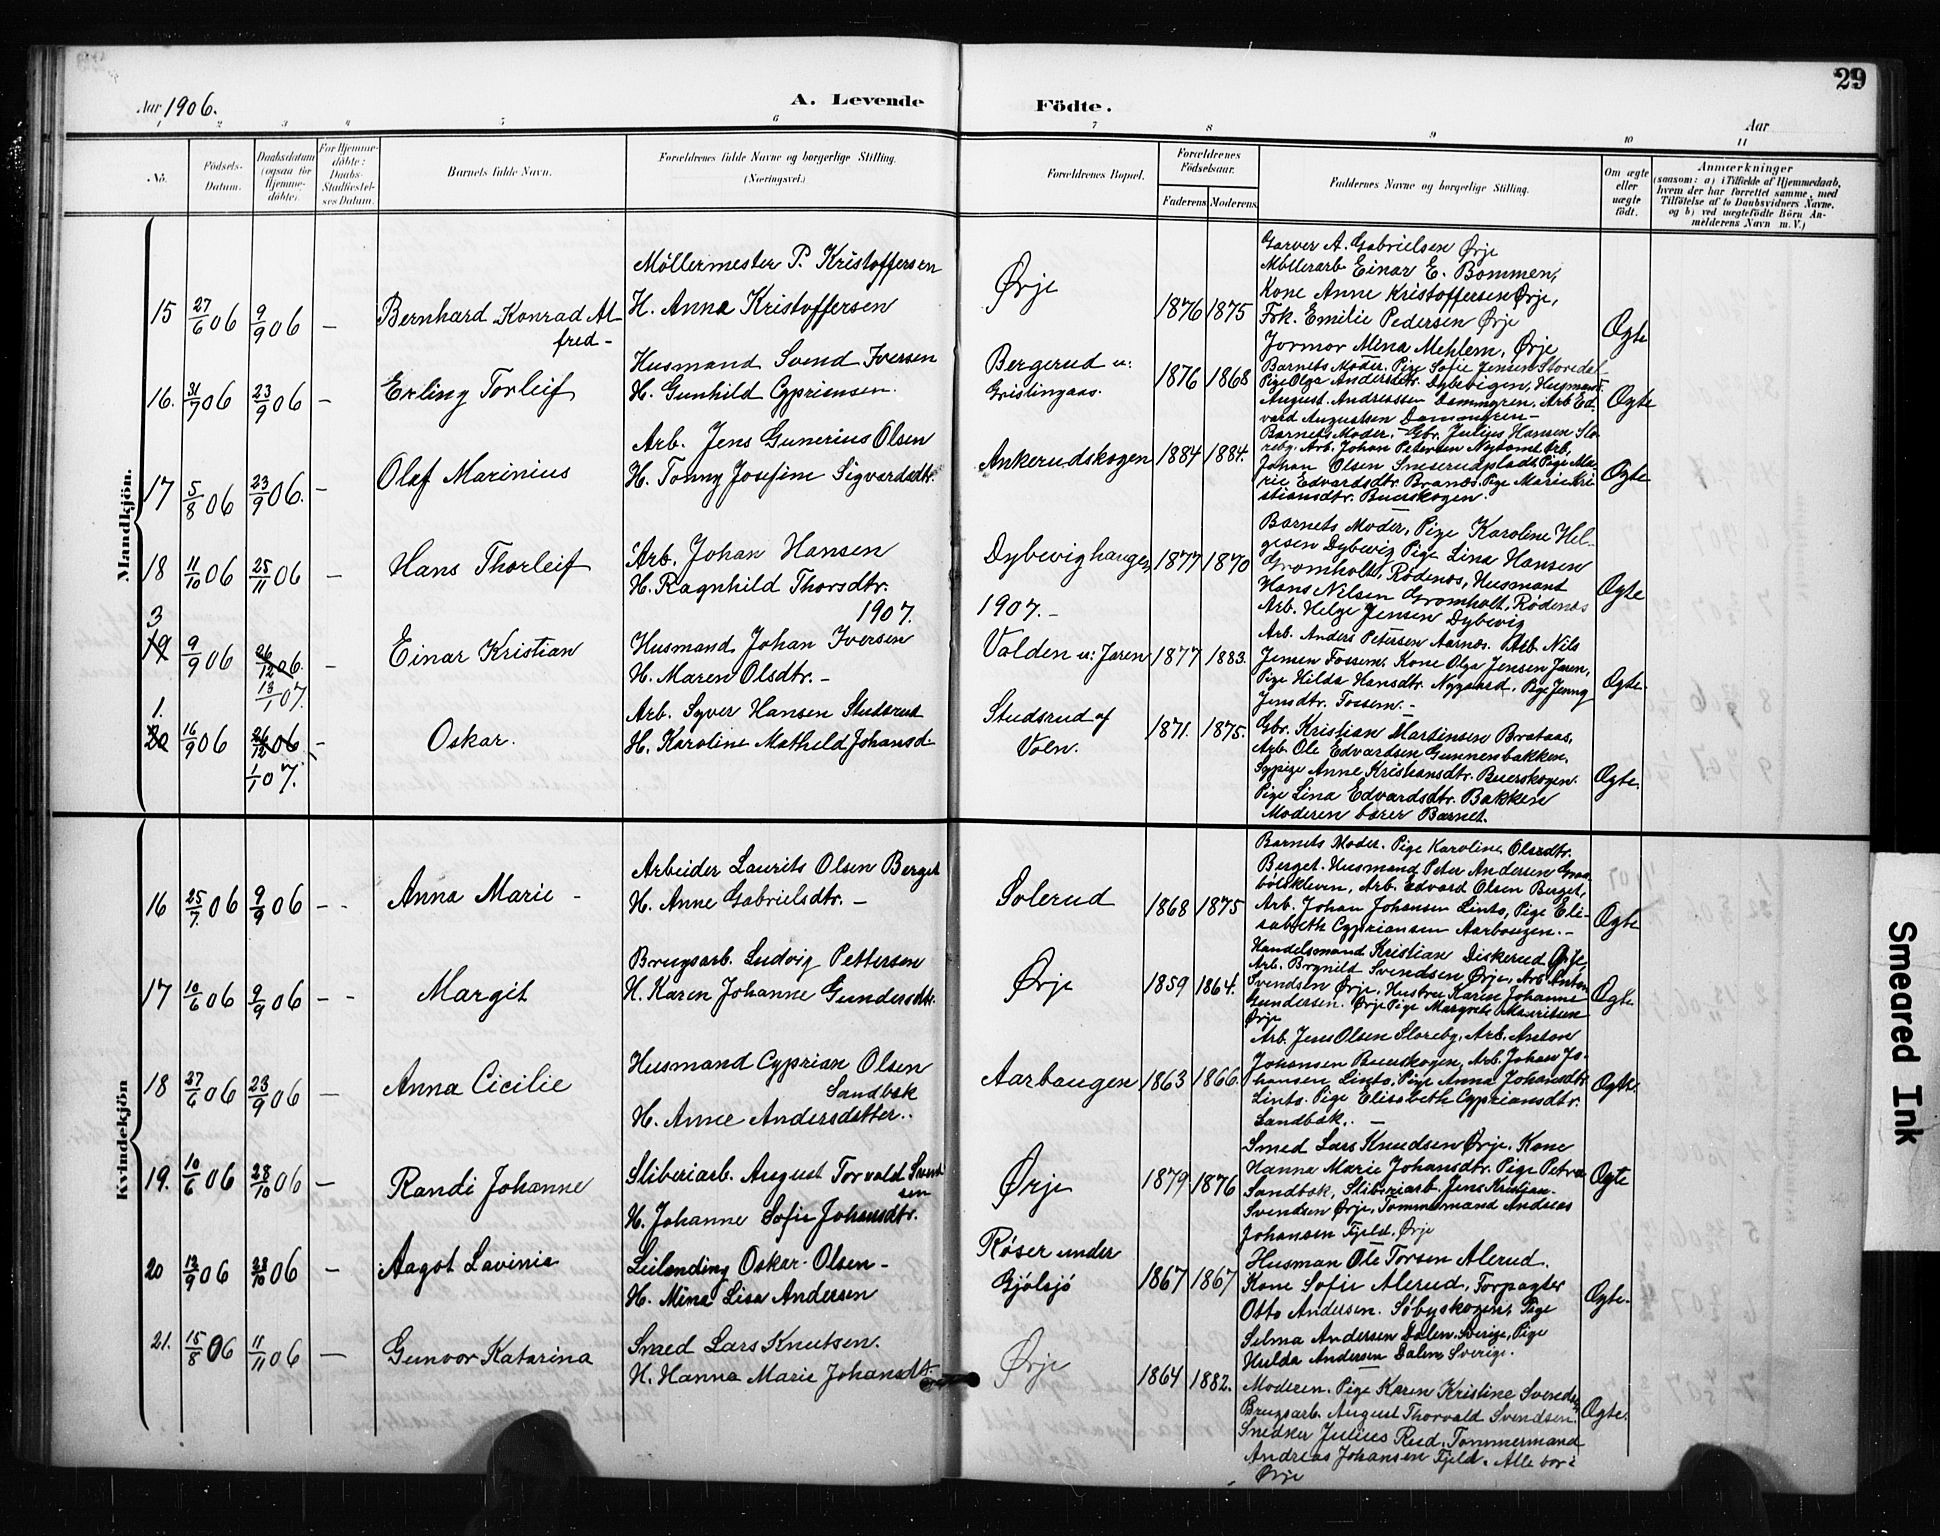 29
Aar 1906.
A. Levende
Födte.
Aar
1 2 3 4 5 6 7 8 9 10 11
No.
Födsels-
Datum.
Daabsdatum
(ogsaa for
Hjemme-
döbte).
For Hjemme-
döbte:
Daabs-
Stadfæstel-
ses Datum.
Barnets fulde Navn.
Forældrenes fulde Navne og borgerlige Stilling.
(Næringsvei.)
Forældrenes Bopæl.
Forældrenes
Födselsaar.
Faderens
Moderens
Faddernes Navne og borgerlige Stilling.
Om ægte
eller
uægte
födt.
Anmærkninger
(saasom: a) i Tilfælde af Hjemmedaab,
hvem der har forrettet samme, med
Tilföielse af to Daabsvidners Navne.
og b) ved uægtefödte Börn An-
melderens Navn m. V.)
Mandkjön.
15 27/6 06 9/9 06 —
Bernhard Konrad Al
fred-
Möllermester P. Kristoffersen
H. Anna Kristoffersen
Ørje
1876 1875
Garver A. Gabrielsen Ørje
Möllerarb Einar E. Bommen,
Kone Anne Kristoffersen Ørje,
Frk. Emilie Pedersen Ørje
Jormor Mina Mehlem, Ørje
Ægte
16. 31/7 06 23/9 06 —
Erling Torleif
Husmand Svend Iversen
H. Gunhild Cypriensen.
Bergerud u:
Gristingaas.
1876 1868
Barnets Moder. Pige Sofie Jensen Storedal
Pige Olga Andersdtr. Dybevigen, Husmand
August Andreassen Dammyren. Arb. Ed-
vard Augustsen Dammyren-
Ægte
17 5/8 06 23/9 06. —
Olaf Marinius
Arb. Jens Gunerius Olsen
H. Tonny Josefine Sigvardsdtr.
Ankerudskogen
1884 1884.
Barnets Moder. Gbr. Julius Hansen Slo
reby. Arb. Johan Petersen Nytomt Arb,
Johan Olsen Smeserudplads, Pige Ma-
rie Edvardsdtr. Branæs. Pige Marie Kri
stiansdtr. Buerskogen.
Ægte
18 11/10 06 25/11 06 —
Hans Thorleif
Arb. Johan Hansen
H. Ragnhild Thorsdtr.
Dybevighaugen
1877 1870
Barnets Moder, Pige Karoline Hel-
gesen Dybevig Pige Lina Hansen
Gromholt, Rödenæs, Husmand
Hans Nilsen Gromholt, Rödenæs
Arb. Helge Jensen Dybevig
Ægte
1907.
1907. -
3
19 9/9 06 26/12 06.
13/1 07. -
Einar Kristian
Husmand Johan Iversen
H. Maren Olsdtr. -
Volden u: Jaren
1877 1883.
Arb. Anders Petersen Aarnæs. Arb. Nils
Jensen Fossem, Kone Olga Jensen Jaren,
Pige Hilda Hansdtr. Nygaard, Pige Jenny
Jensdtr. Fossem. -
Ægte.
1.
20 16/9 06 26/12 06 -
1/1 07.
Oskar.
Arb. Syver Hansen Studsrud
H. Karoline Mathild Johansd.
Studsrud af
Voln.
1871. 1875.
Gbr. Kristian Martinsen Brataas,
Arb. Ole Edvardsen Gunnersbakken,
Sypige Anne Kristiansdtr. Buerskogen.
Pige Lina Edvardsdtr. Bakken
Moderen bærer Barnet.
Ægte.
Kvindekjön
16 25/7. 06 9/9 06 - -
Anna Marie -
Arbeider Laurits Olsen Berget
H. Anne Gabrielsdtr. -
Solerud
1868 1875
Barnets Moder. Pige Karoline Olsedtr.
Berget. Husmand Peter Andersen Gras
bölskleven, Arb. Edvard Olsen Berget,
Arb. Johan Johansen Linto, Pige Eli-
sabeth Cypriansen Aarbaugen. -
Ægte
17 10/6 06 9/9 06 - -
Margit
Brugsarb. Ludvig Pettersen
H. Karen Johanne Gundersdtr.
Ørje
1859 1864.
Handelsmand Kristian Diskerud Ørje,
Arb. Brynild Svendsen Ørje, Arb. Anton
Svendsen Ørje, Hustru Karen Johanne
Gundersen. Ørje Pige Margrete Mauritsen
Ørje
Ægte
18 27/6 06 23/9 06 —
Anna Cicilie
Husmand Cyprian Olsen
Sandbæk
H. Anne Andersdatter..
Aarbaugen
1863 1866.
Arb. Jens Olsen Sloreby, Arb. Anton
Johansen Buerskogen, Arb. Johan Jo-
hansen Linto. Pige Anna Johansdtr
Linto. Pige Elisabeth Cypriansdtr.
Sandbæk. -
Ægte
19. 10/6 06 28/10 06 —
Randi Johanne
Sliberiarb. August Torvald Svend
sen
H. Johanne Sofie Johansdtr.
Ørje
1879 1876
Smed Lars Knudsen Ørje. Kone
Hanna Marie Johansdtr. Pige Petra
Sandbæk, Sliberiarb. Jens Kristian-
Svendsen Ørje, Tommermand Andreas
Johansen Fjeld. Ørje
Ægte
20 12/9 06 28/10 06 —
Aagot Lavinia
Leilending Oskar Olsen -
H. Mina Lisa Andersen
Röser under
Gjölsjö
1867 1867
Husman Ole Torsen Alerud.
Kone Sofie Alerud, Forpagter
Otto Andersen. Söbyskogen, Pige
Selma Andersen Dalen. Sverige, Pige
Hulda Andersen Dalen Sverige.
Ægte.
21. 15/8 06 11/11 06 —
Gunvor Katarina
Smed Lars Knutsen.
H. Hanna Marie Johansdtr.
Ørje
1864 1882.
Moderen. Pige Karen Kristine Svendsen
Brugsarb. August Thorvald Svendsen.
Snedker Julius Rud, Tommermand
Andreas Johansen Fjeld. Alle bor i
Ørje
Ægte.
Smeared Ink